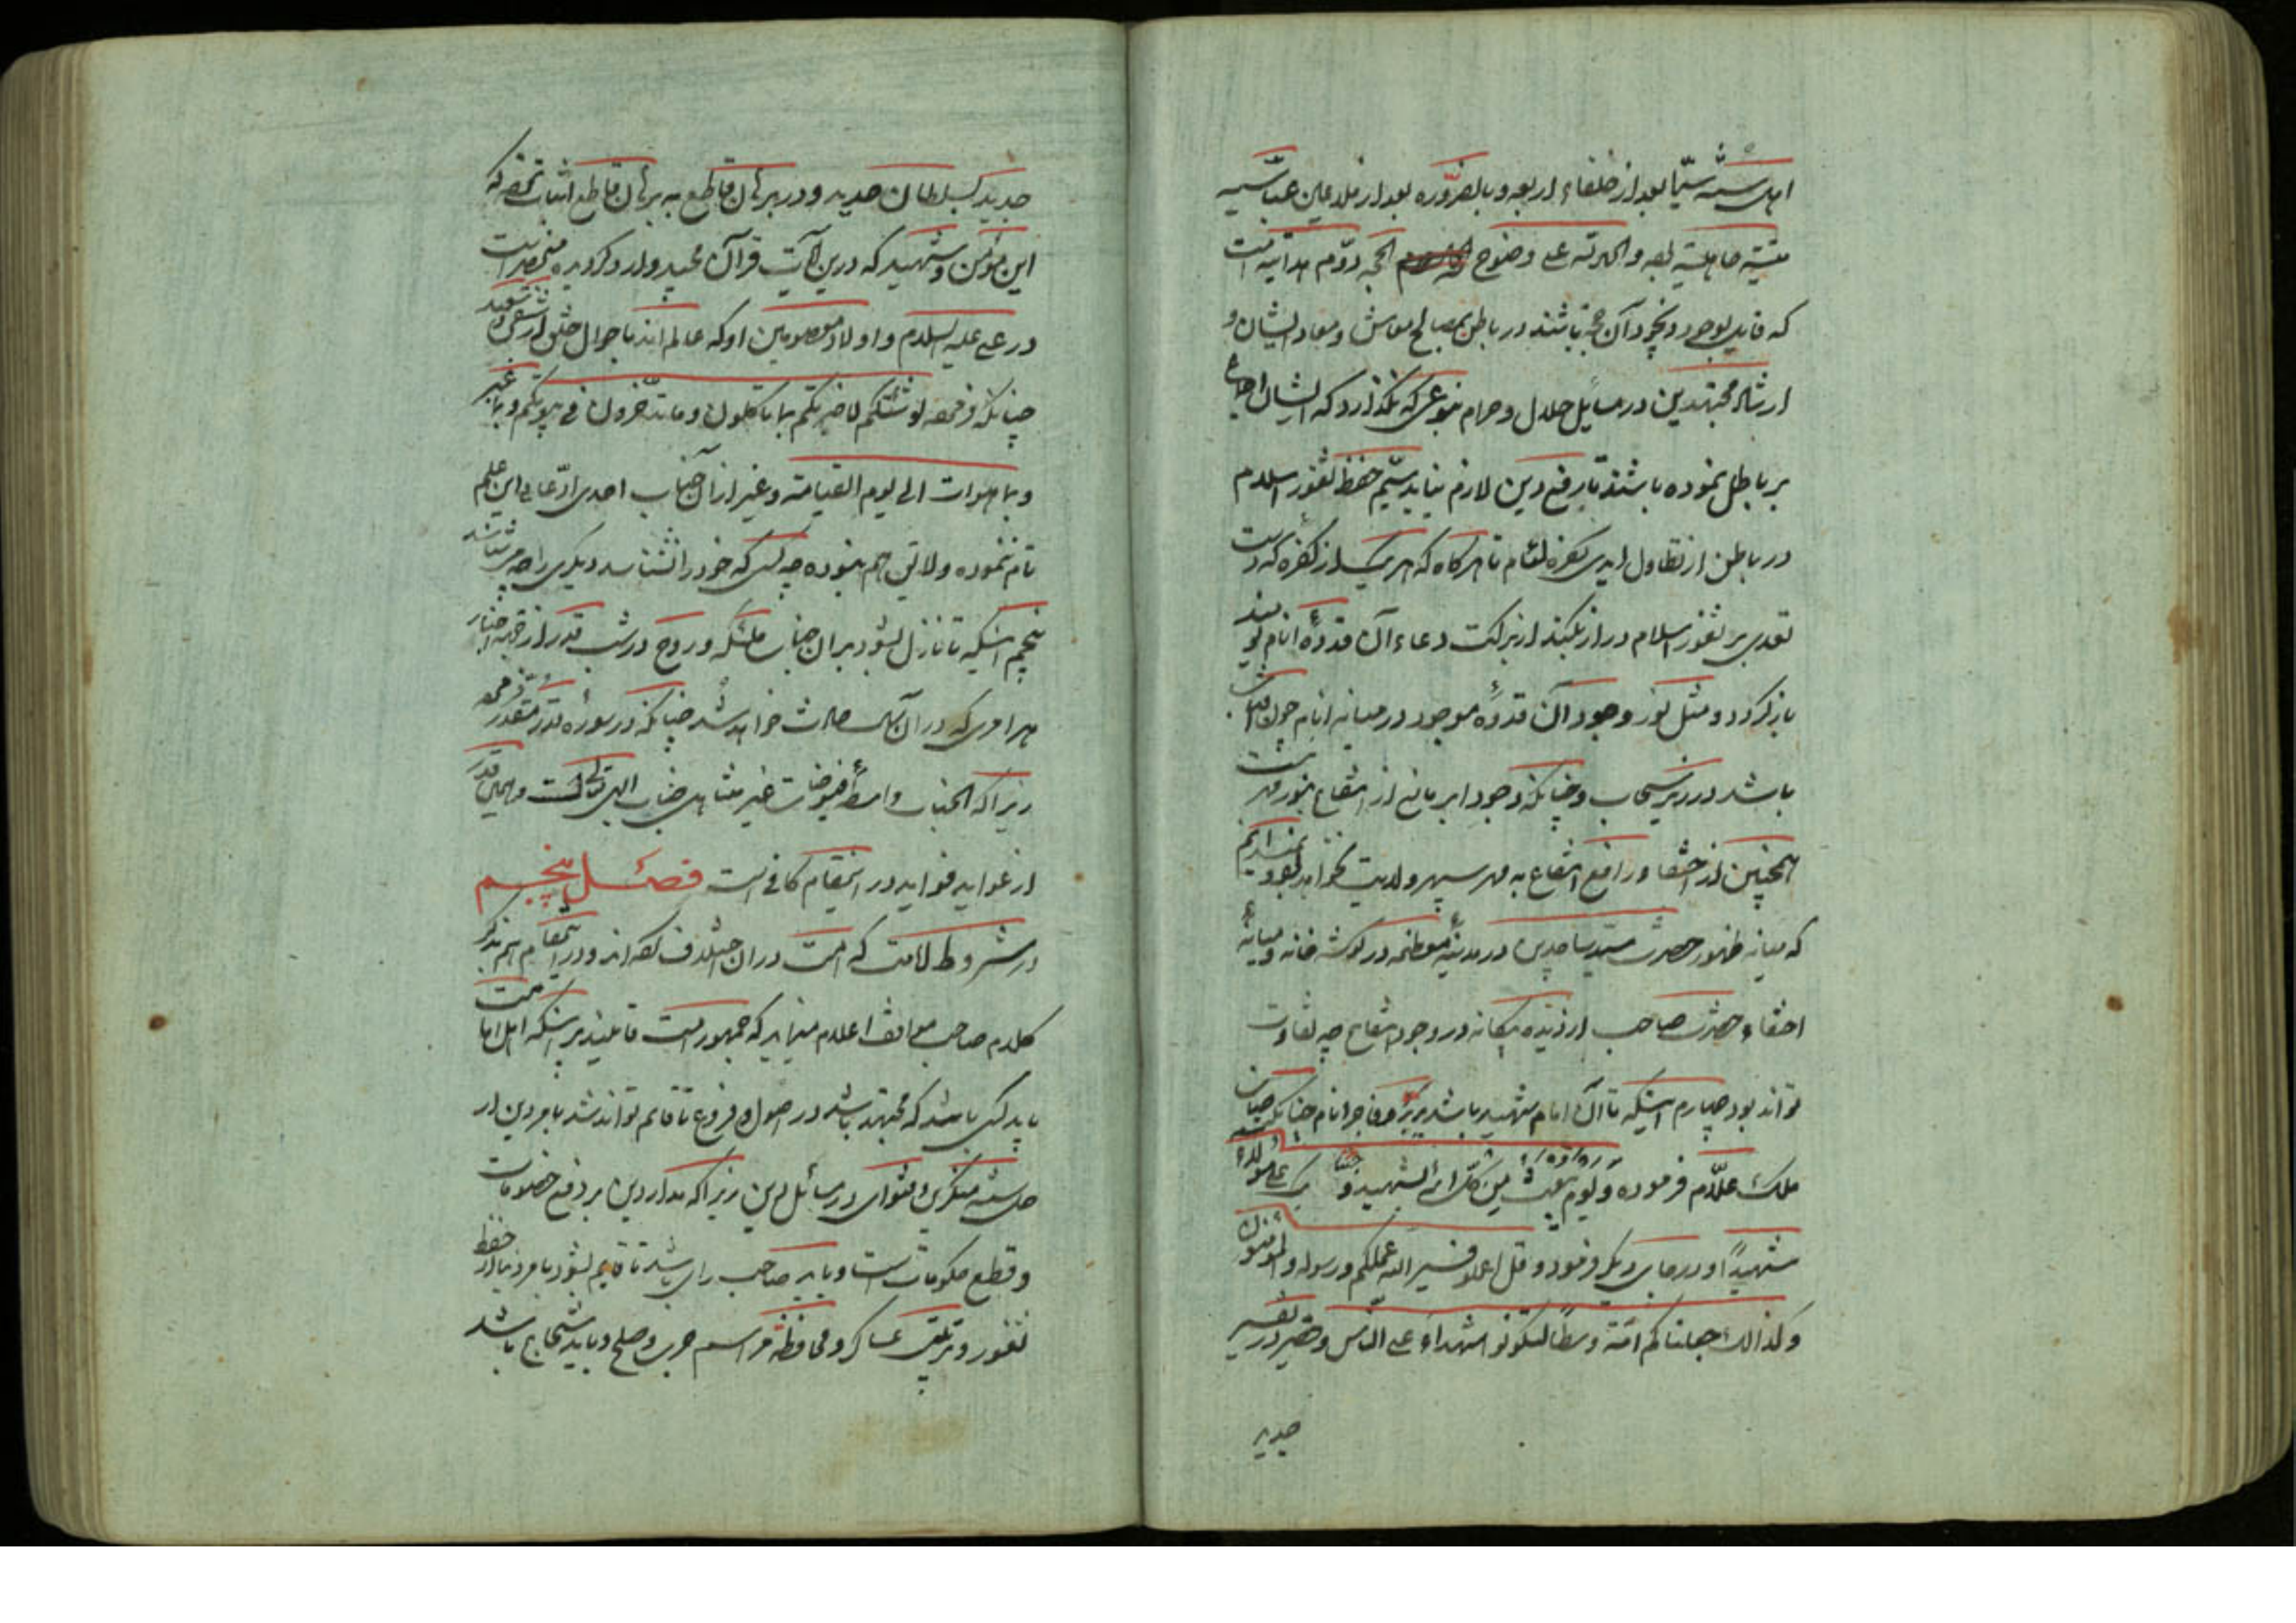 اهل سنّت سیّما بعد از خلفاء اربعه و بالضروره بعد از ملاعین عباسیه
میتة جاهلیة لعه و الحمد لله علی وضوح الحجه دوّم
که باشند در باطن بمصالح معاش و معاد ایشان و
ارشاد مجتهدین در مسایل حلال و حرام بنوعی که نگذارد که ایشان اجماع
بر باطل نموده باشند تا رفع دین لازم نیاید سیّم حفظ ثغور اسلام
در باطن از تطاول ایدی کفره لئام تا هرگاه که هر یک از کفره که دست
تعدی بر ثغور اسلام دراز بکنند از برکت دعاء آن قدوهٔ انام
باز گردد و مثل نور وجود آن قدوهٔ موجود در میانه انام چون آفتاب
باشد در زیر سحاب و چنانکه وجود ابر مانع از انتفاع بنور مهر نیست
همچنین اختفا رافع انتفاع به مهر سپهر ولایت نخواهد بود
که میانه ظهور حضرت سید ساجدین در مدینهٔ معظمه در گوشه خانه و میانهٔ
اختفاء حضرت صاحب از دیده بیگانه در وجود انتفاع چه تفاوت
تواند بود چهارم اینکه تا آن امام شهید باشد بر بر و فاجر انام چنانکه جناب
ملک علّام فرموده و یوم نبعث من کل امة شهیدا و جئنا بک علی هولاء
شهیدًا و در جای دیگر فرموده و قل اعملوا فسیر الله عملکم و رسوله و المومنون
و کذالک جعلناکم امّة وسطًا لتکونوا شهداء علی النّاس و حقیر در تفسیر
جدید
جدید بسلطان جدید و در برهان قاطع به برهان قاطع اثبات نموده که
این مؤمن و شهید که درین آیت قرآن مجید وارد گردیده منحصر است
در علی علیه السلام و اولاد معصومین او که عالم اند باحوال خلق از شقی و سعید
چنانکه فرموده لو شئتکم لاخبرتکم بما تاکلون و ما تدّخرون فی بیوتکم و بما غبر
و بما هوات الی یوم القیامة و غیر از آن جناب احدی ادّعای این علم
تام ننموده و لایق هم نبوده چه کسی که خود را نشناسد دیگری را چه می شناسد
پنجم اینکه تا نازل بشود بر آن جناب ملئکه و روح در شب قدر از اخبار
هر امری که در آن سال حادث خواهد شد چنانکه در سوره قدر مقدر فرموده
زیرا که آنجناب واسطهٔ فیوضات غیر متناهی جناب الهی است و همین قدر
از عواید فواید در اینمقام کافی است فصل پنجم
در شروط امامت که امت در آن اختلاف کرده اند و در اینمقام هم بذکر
کلام صاحب مواقف اعلام مینماید که جمهور امت قایلند بر اینکه اهل امامت
باید کسی باشد که مجتهد باشد در اصول و فروع تا قایم تواند شد بامر دین از
حل شبه منکرین و فتوای در مسائل دین زیرا که مدار دین بر دفع خصومات
و قطع حکومات است و باید صاحب رای باشد تا قایم بشود بامر دنیا از حفظ
ثغور و ترتیب عساکر و محافظة مراسم حرب و صلح و باید شجاع باشد